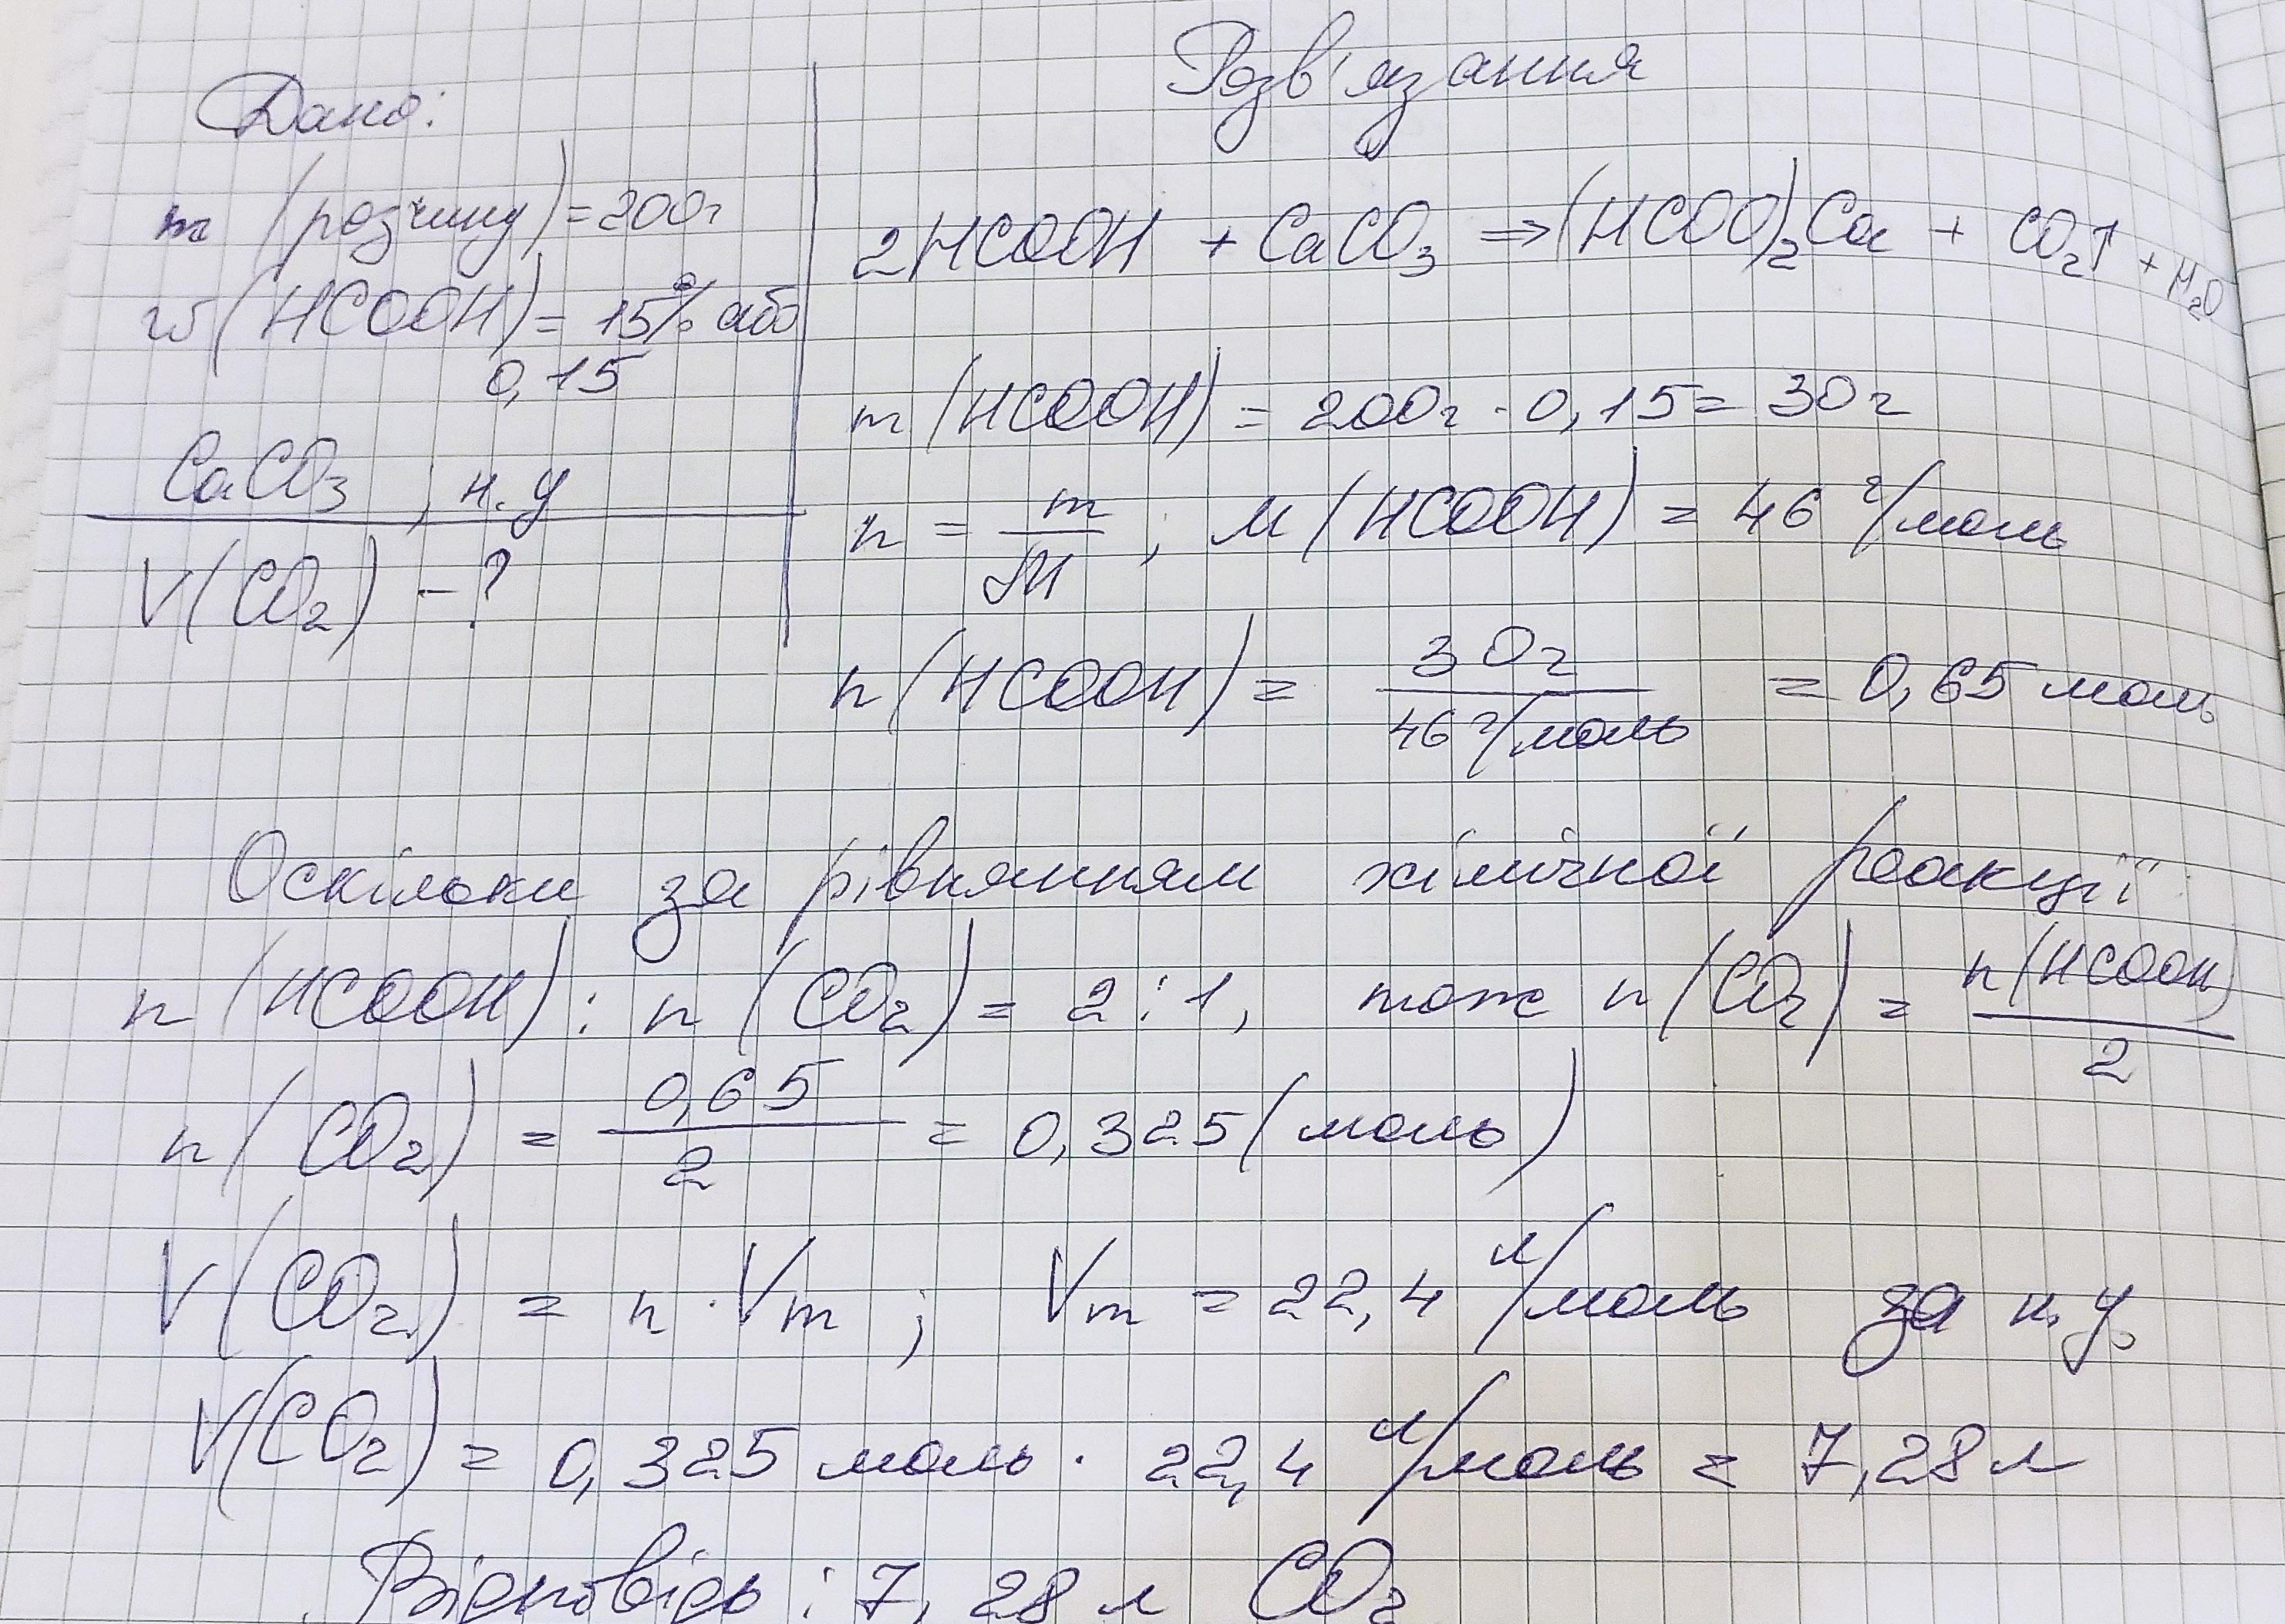 Дано:
m (розчину) = 200г
w (HCOOH) = 15% або
0,15
CaCO3 ; н.у
V(CO2) - ?
Розв'язання
2HCOOH + CaCO3 ⇒ (HCOO)2Ca + CO2↑ + H2O
m (HCOOH) = 200г · 0,15 = 30г
n = m/M ; M (HCOOH) = 46 г/моль
n (HCOOH) = 30г / 46 г/моль = 0,65 моль
Оскільки за рівнянням хімічної реакції:
n (HCOOH) : n (CO2) = 2:1, тоже n (CO2) = n(HCOOH)/2
n (CO2) = 0,65/2 = 0,325 (моль)
V(CO2) = n · Vm ; Vm = 22,4 л/моль за н.у.
V(CO2) = 0,325 моль · 22,4 л/моль = 7,28 л
Відповідь : 7,28 л CO2